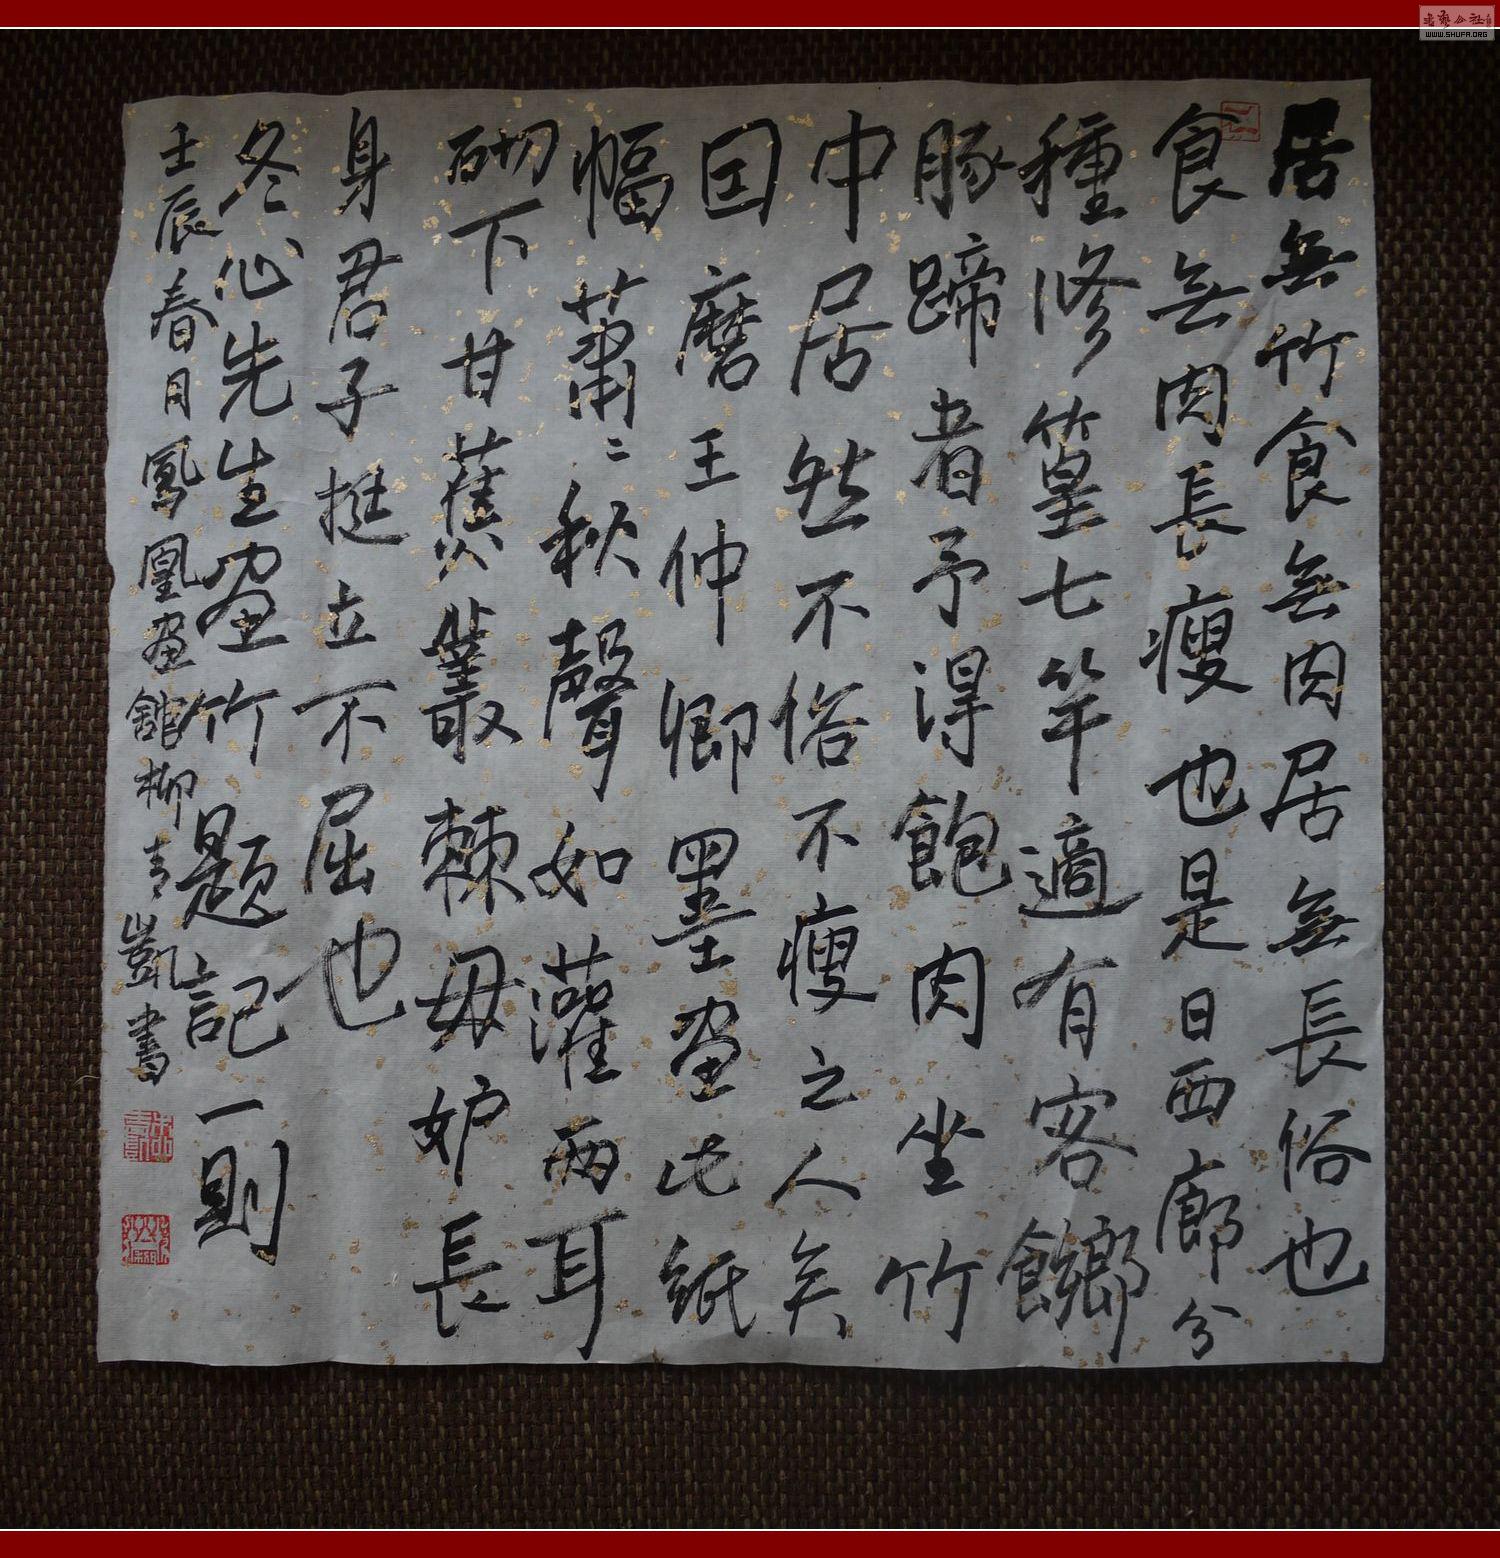 居無竹食無肉居無長俗也
食無肉長瘦也是日西廊分
種修篁七竿適有客餉
豚蹄者予得飽肉坐竹
中居然不俗不瘦之人矣
因磨王仲卿墨畫此紙
幅蕭〻秋聲如灌兩耳
砌下甘蕉叢棘毋妒長
身君子挺立不屈也
冬心先生畫竹題記一則
壬辰春月鳳凰畫館柳青凱書
WWW.SHUFA.ORG